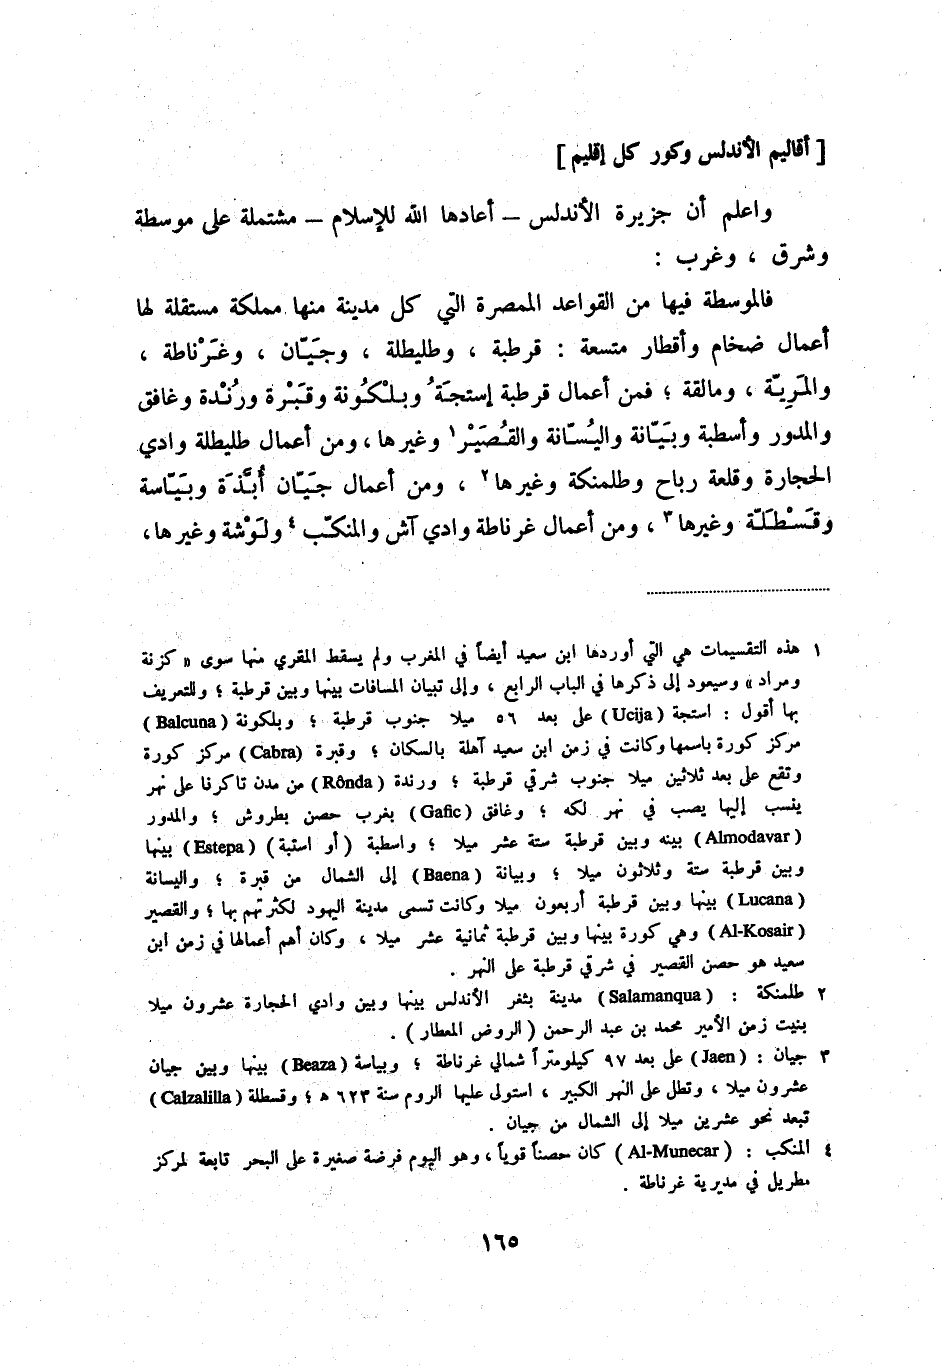 [ أقاليم الأندلس وكور كل إقليم ]
واعلم أن جزيرة الأندلس – أعادها الله للإسلام – مشتملة على موسطة
وشرق ، وغرب :
فالموسطة فيها من القواعد الممصرة التي كل مدينة منها مملكة مستقلة لها
أعمال ضخام وأقطار متسعة : قرطبة ، وطليطلة ، وجَيّان ، وغَرْناطة ،
والمَرِيّة ، ومالقة ؛ فمن أعمال قرطبة إستجةُ وبلْكُونة وقَبْرة ورُنْدة وغافق
والمدور وأسطبة وبَيّانة واليُسّانة والقُصَيْر١ وغيرها ، ومن أعمال طليطلة وادي
الحجارة وقلعة رباح وطلمنكة وغيرها٢ ، ومن أعمال جَيّان أُبَّذَة وبَيّاسة
وقَسْطَلّة وغيرها٣ ، ومن أعمال غرناطة وادي آش والمنكّب٤ ولَوْشة وغيرها ،
١ هذه التقسيمات هي التي أوردها ابن سعيد أيضاً في المغرب ولم يسقط المقري منها سوى « كزنة
ومراد » وسيعود إلى ذكرها في الباب الرابع ، وإلى تبيان المسافات بينها وبين قرطبة ؛ وللتعريف
بها أقول : استجة (Ucija) على بعد ٥٦ ميلا جنوب قرطبة ؛ وبلكونة (Balcuna)
مركز كورة باسمها وكانت في زمن ابن سعيد آهلة بالسكان ؛ وقبرة (Cabra) مركز كورة
وتقع على بعد ثلاثين ميلا جنوب شرقي قرطبة ؛ ورندة (Rônda) من مدن تاكرنا على نهر
ينسب إليها يصب في نهر لكه ؛ وغافق (Gafic) بغرب حصن بطروش ؛ والمدور
(Almodavar) بينه وبين قرطبة ستة عشر ميلا ؛ واسطبة (أو استبة) (Estepa) بينها
وبين قرطبة ستة وثلاثون ميلا ؛ وبيانة (Baena) إلى الشمال من قبرة ؛ واليسانة
(Lucana) بينها وبين قرطبة أربعون ميلا وكانت تسمى مدينة اليهود لكثرتهم بها ؛ والقصير
(Al-Kosair) وهي كورة بينها وبين قرطبة ثمانية عشر ميلا ، وكان أهم أعمالها في زمن ابن
سعيد هو حصن القصير في شرقي قرطبة على النهر .
٢ طلمنكة : (Salamanqua) مدينة بثغر الأندلس بينها وبين وادي الحجارة عشرون ميلا
بنيت زمن الأمير محمد بن عبد الرحمن ( الروض المعطار ) .
٣ جيان : (Jaen) على بعد ٩٧ كيلومتراً شمالي غرناطة ؛ وبياسة (Beaza) بينها وبين جيان
عشرون ميلا ، وتطل على النهر الكبير ، استولى عليها الروم سنة ٦٢٣ ه ؛ وقسطلة (Calzalilla)
تبعد نحو عشرين ميلا إلى الشمال من جيان .
٤ المنكب : (Al-Munecar) كان حصناً قوياً ، وهو اليوم فرضة صغيرة على البحر تابعة لمركز
مطريل في مديرية غرناطة .
١٦٥